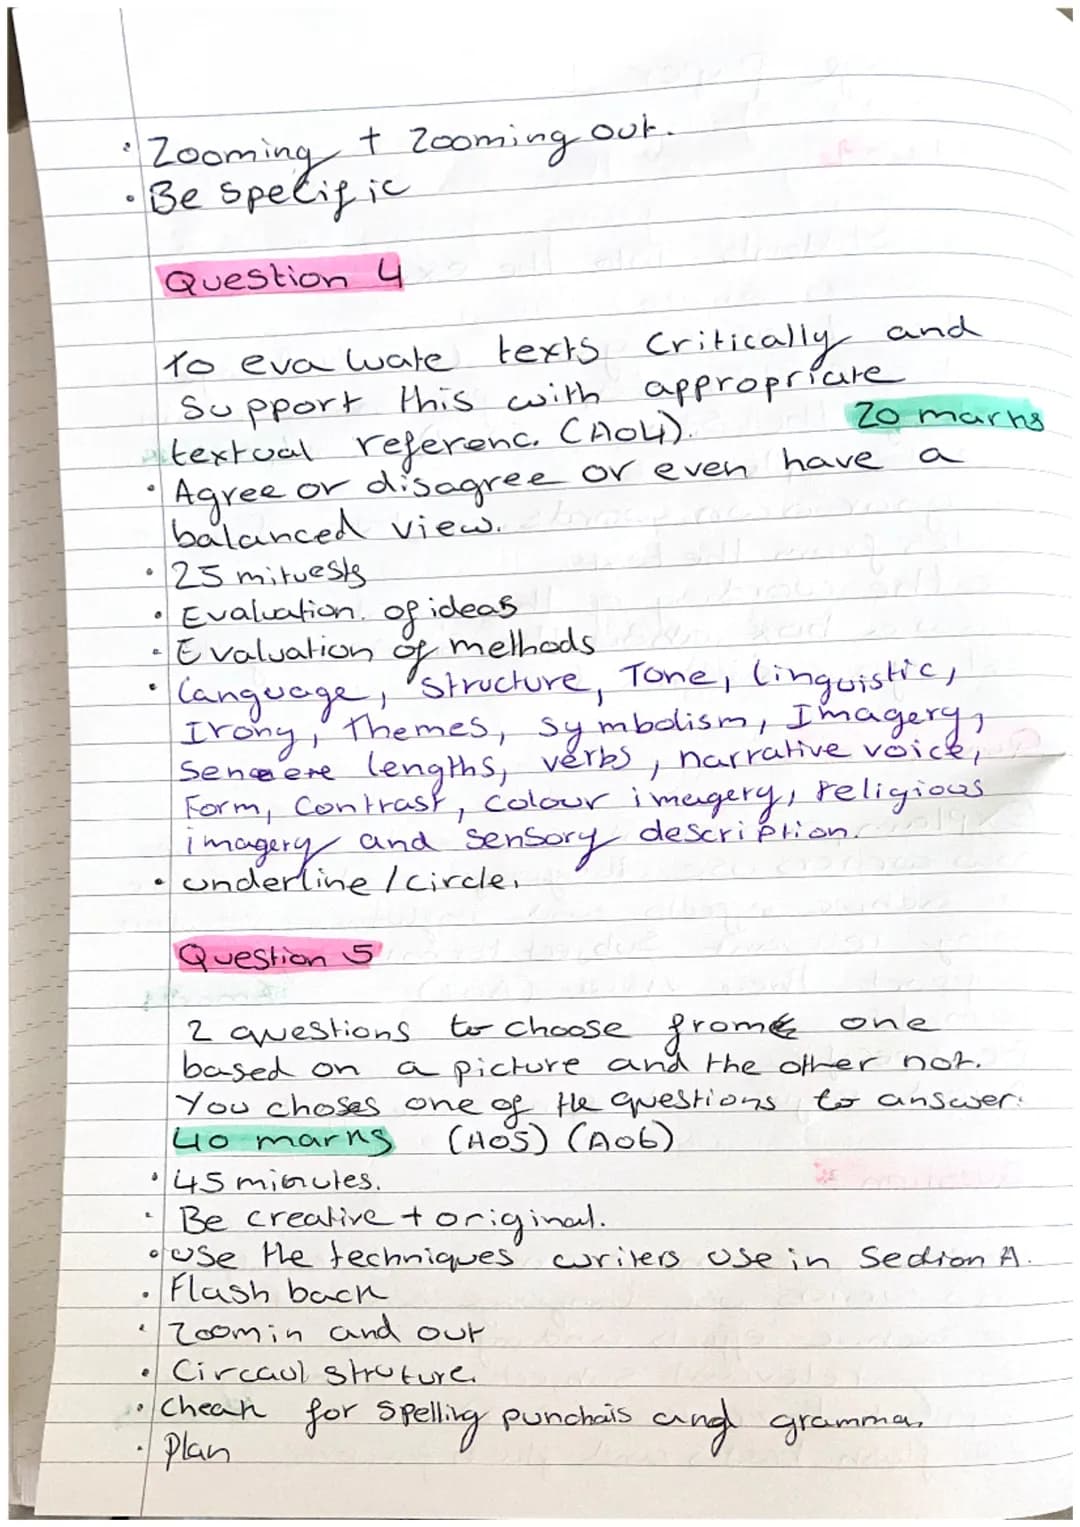 · Zooming + Zooming out.
· Be Specific
Question 4
to evaluate texts critically and
Support this with appropriate
textual referenc. (AO4).
20 marks
· Agree or disagree or even have a
balanced view.
· 25 mituests
· Evaluation. of ideas
· Evaluation of methods
· Language, Structure, Tone, Linguistic,
Irony, Themes, symbolism, Imagery,
Senceere lengths, verbs, narrative voice,
Form, Contrast, colour imagery, religious
imagery and sensory description.
· underline / circle.
Question 5
2 questions to choose from one
based on a picture and the other not.
You choses one of the questions to answer.
40 marks (AO5) (AO6)
· 45 minutes.
· Be creative + original.
· Use the techniques writers use in Section A.
· Flash back
· Zoom in and out
· Circaul struture.
· Cheak for spelling punchais and gramma.
· Plan